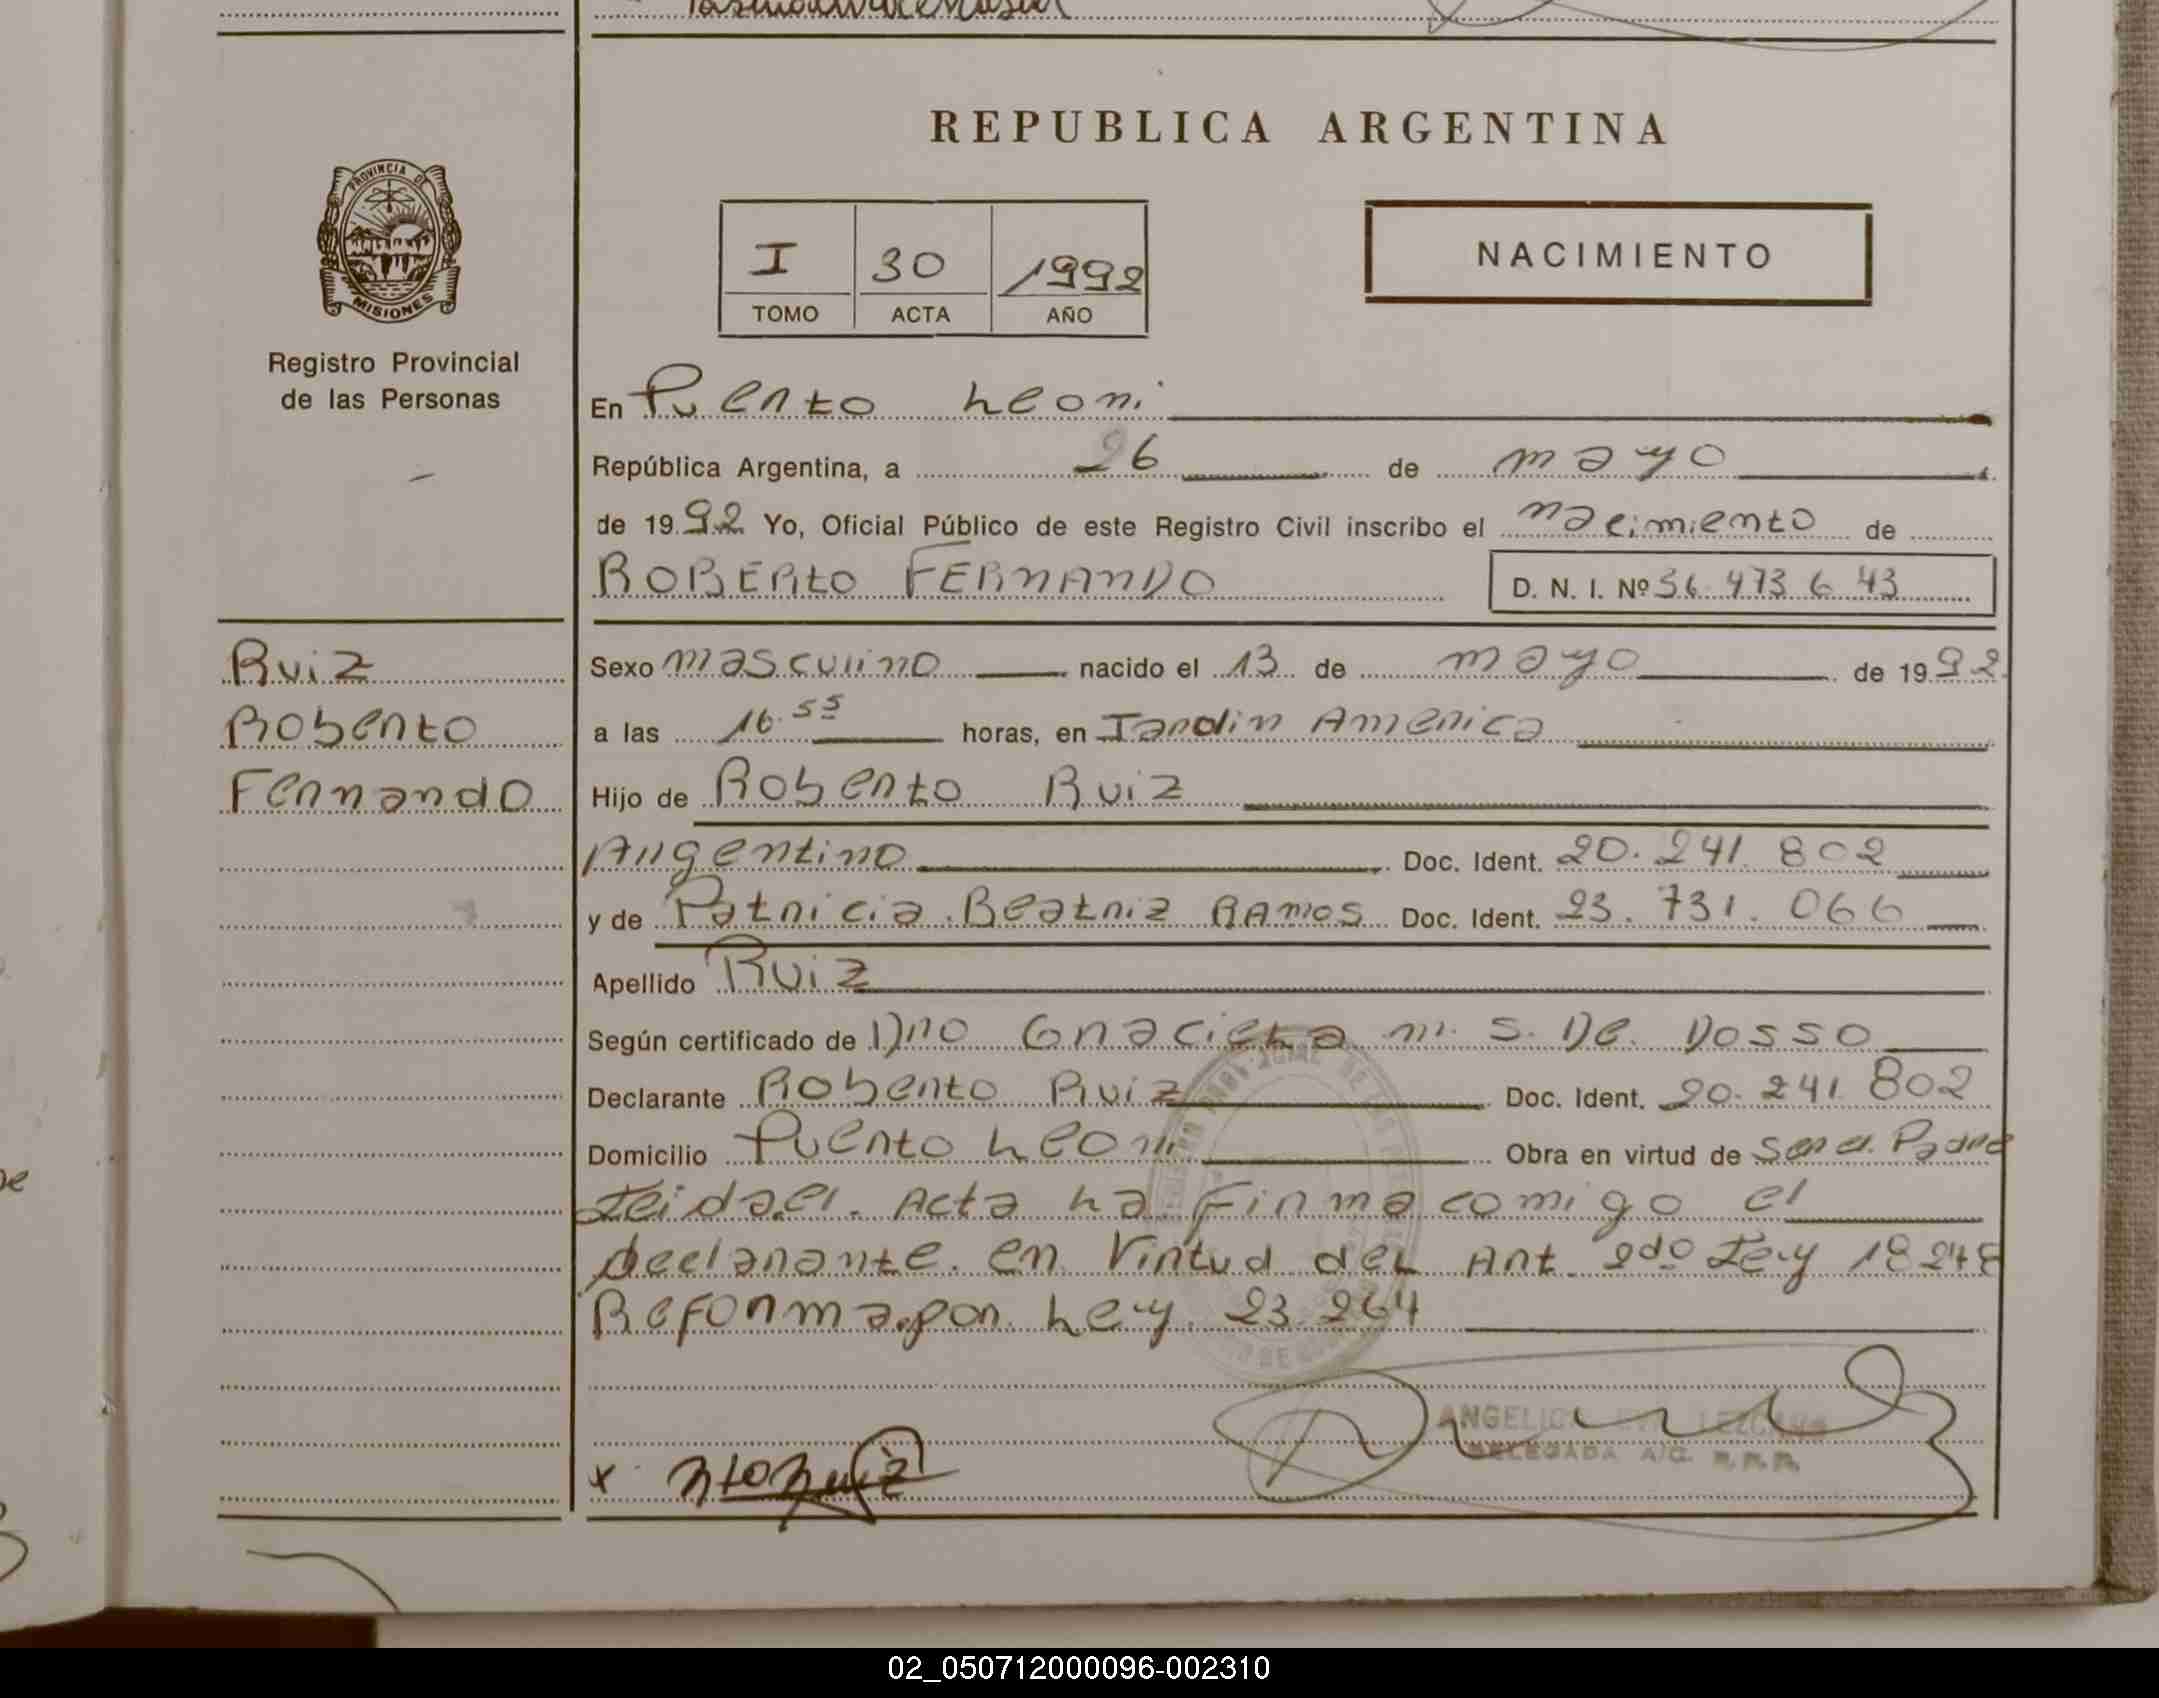 REPUBLICA ARGENTINA
PROVINCIA DE
MISIONES
Registro Provincial
de las Personas
I 30 1992
TOMO ACTA AÑO
NACIMIENTO
En Puerto Leoni
República Argentina, a 26 de mayo
de 1992 Yo, Oficial Público de este Registro Civil inscribo el nacimiento de
ROBERtO FERNANDO D. N. I. Nº 36.473 643
Ruiz
Roberto
Fernando
Sexo masculino nacido el 13 de mayo de 1992
a las 16.55 horas, en Jardin America
Hijo de Roberto Ruiz
Argentino Doc. Ident. 20.241.802
y de Patricia Beatriz RAmos Doc. Ident. 23.731.066
Apellido Ruiz
Según certificado de Dra Graciela m. S. De Dosso
Declarante Roberto Ruiz Doc. Ident. 20.241.802
Domicilio Puerto Leoni Obra en virtud de Ser el Padre
Leida el Acta la Firma comigo el
declarante en Virtud del Art. 2do Ley 18248
Reforma por Ley 23.264
ANGELICA LEZCANO
DELEGADA A/C. R.P.P.
x Rto Ruiz
02_050712000096-002310